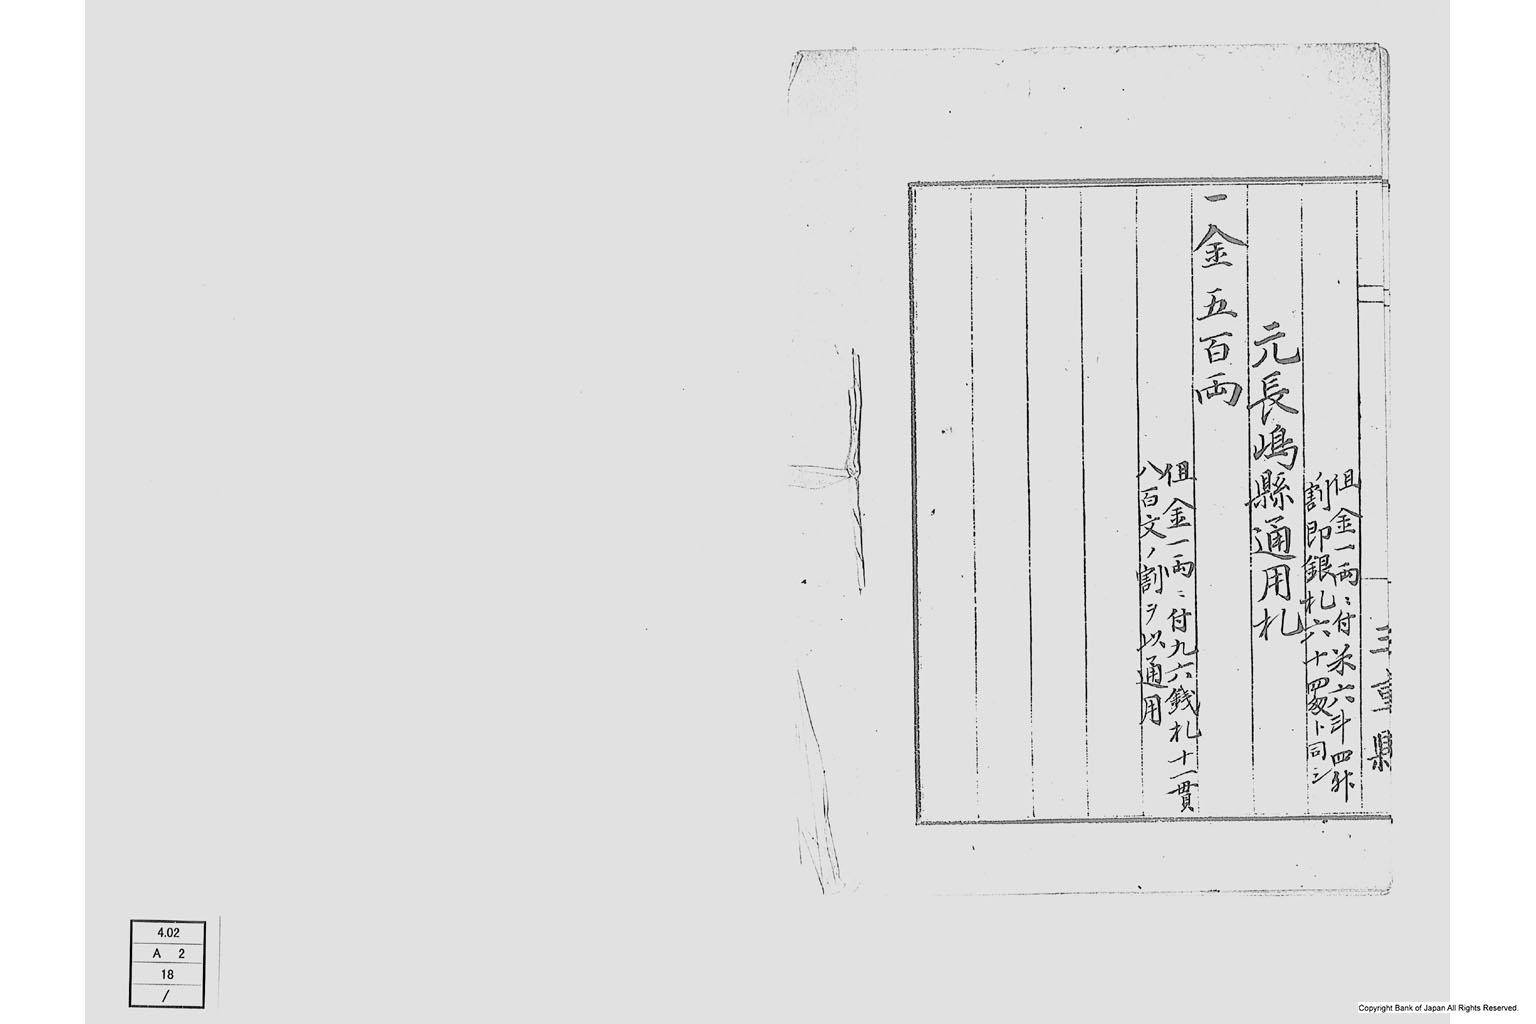 三重縣
但金一両ニ付米六斗四升
割即銀札六十四匁ト同シ
元長嶋縣通用札
一金五百両
但金一両ニ付九六銭札十一貫
八百文ノ割ヲ以通用
4.02
A 2
18
/
Copyright Bank of Japan All Rights Reserved.